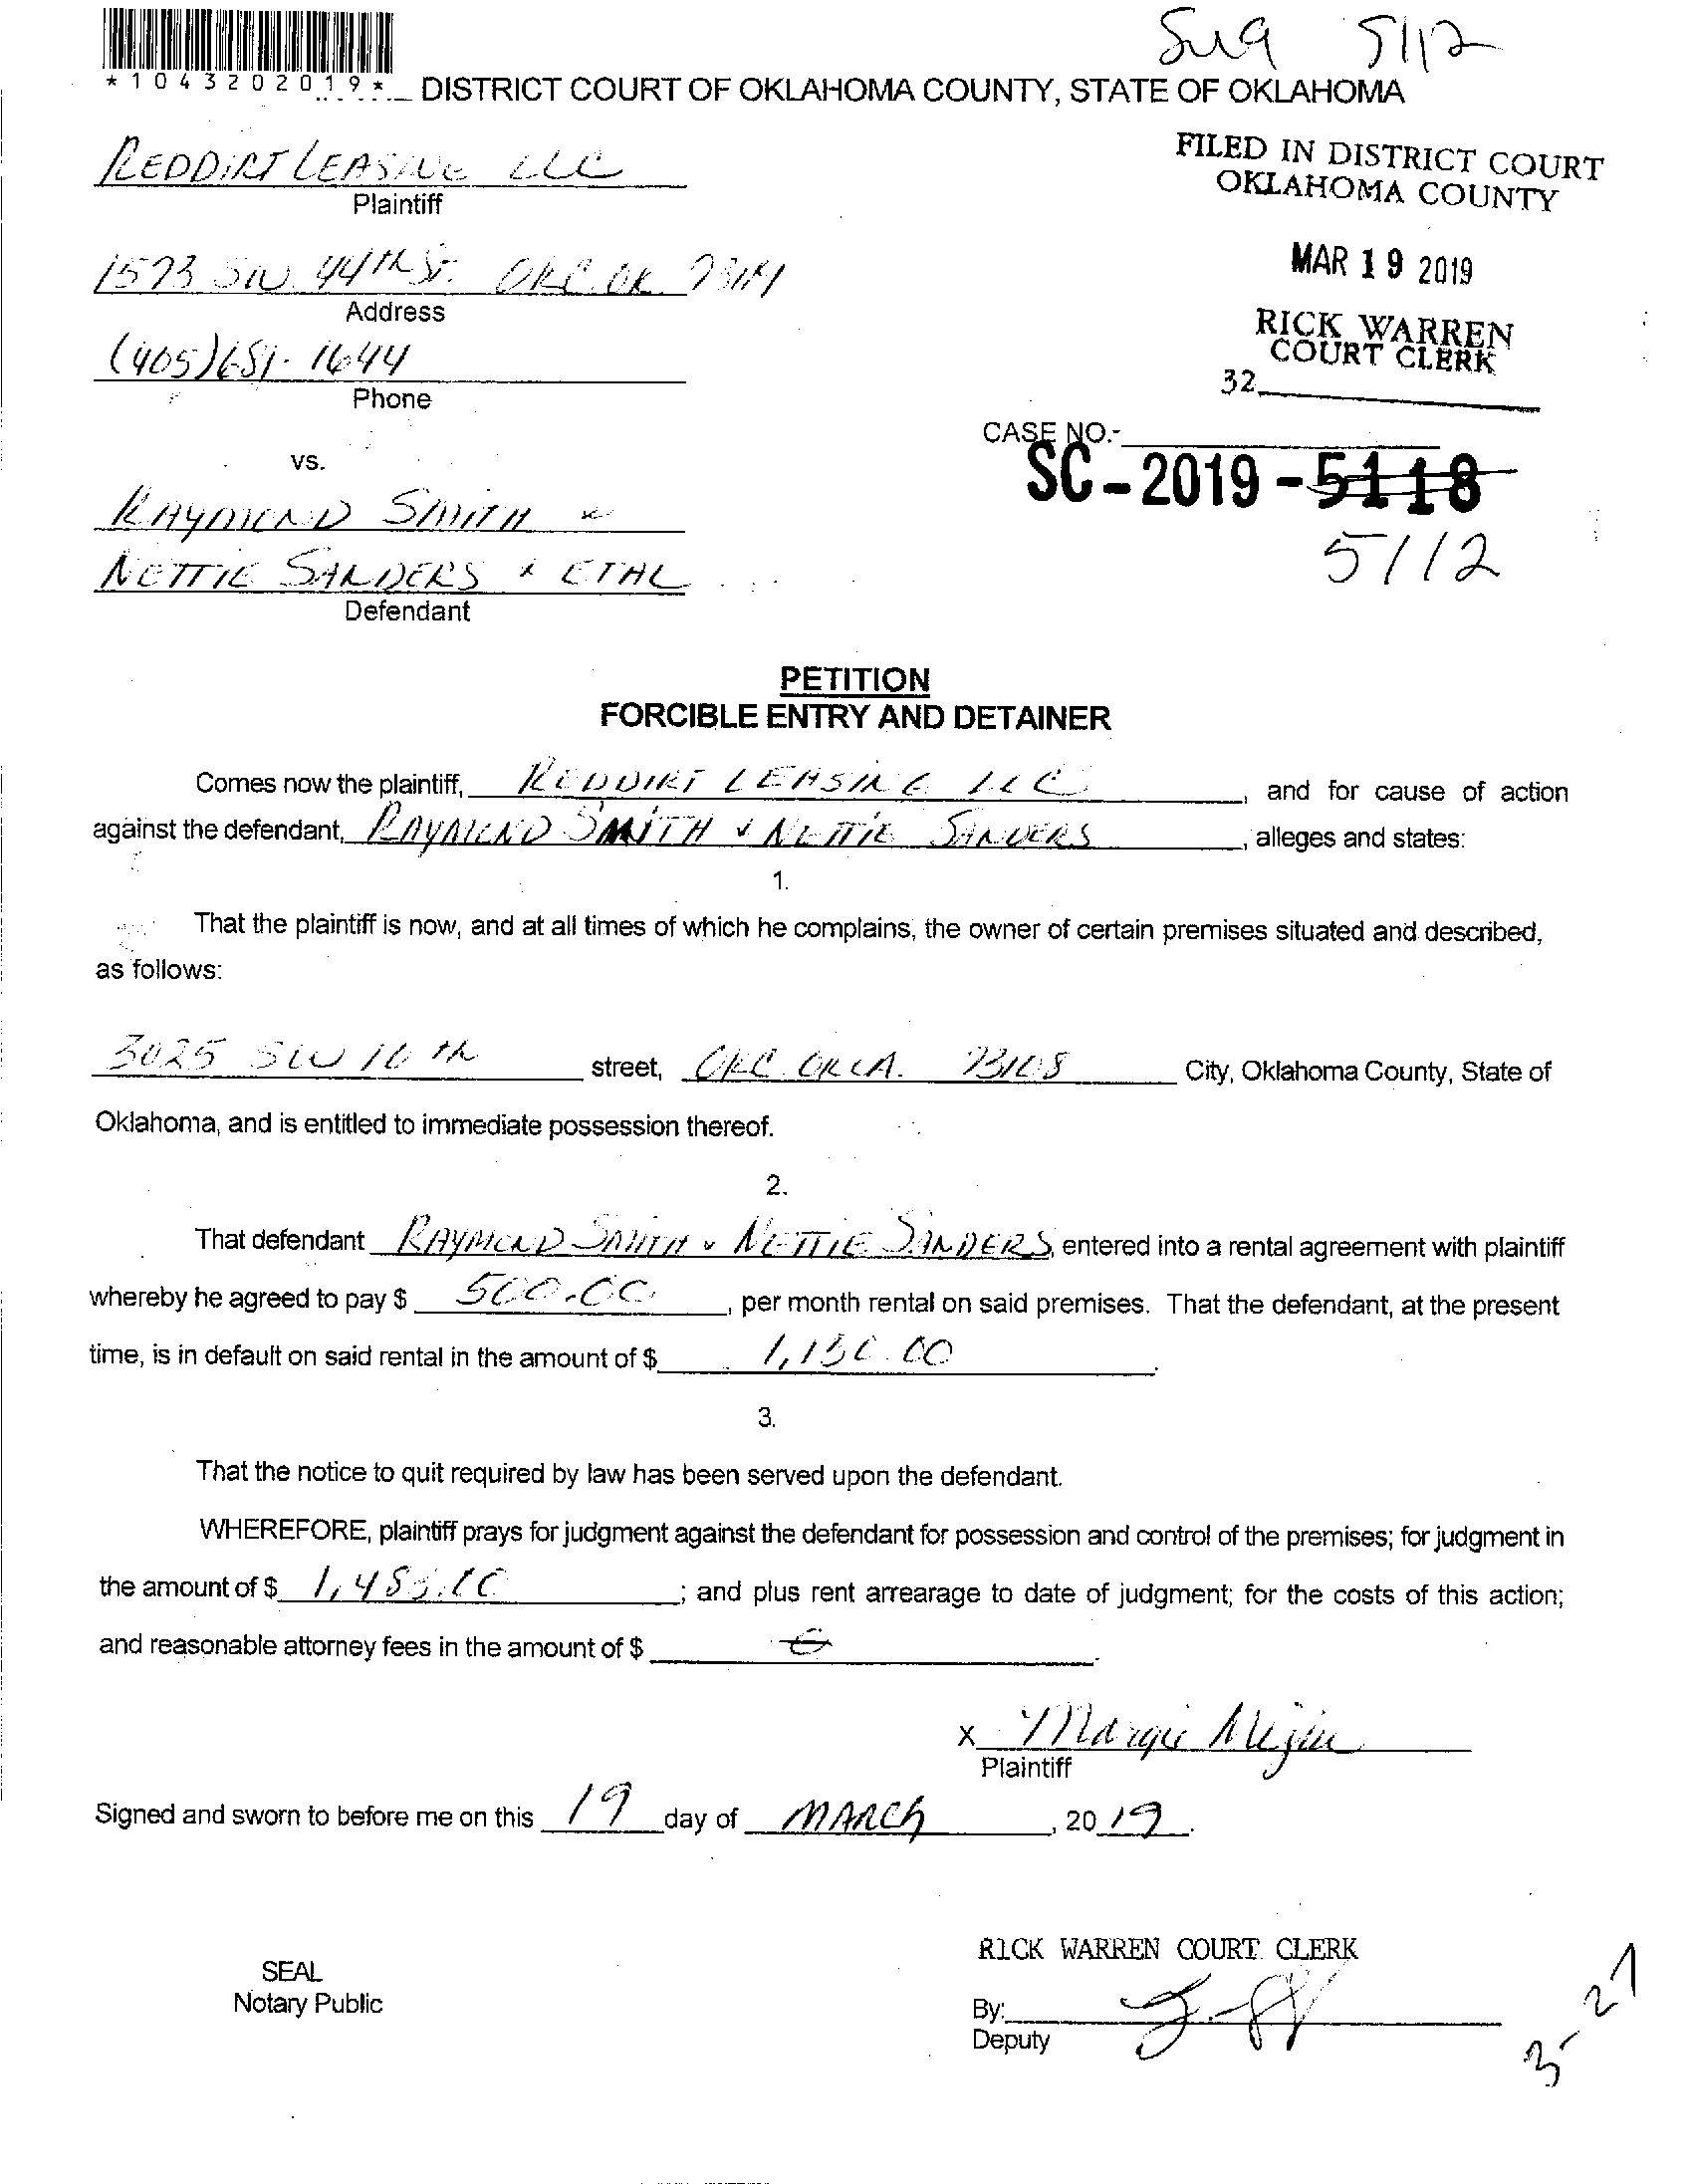 Sug 5112
*1043202019*
DISTRICT COURT OF OKLAHOMA COUNTY, STATE OF OKLAHOMA
REDDIRT LEASING LLC
Plaintiff
FILED IN DISTRICT COURT
OKLAHOMA COUNTY
MAR 19 2019
RICK WARREN
COURT CLERK
32
1573 SW 44th St. OKC. OK. 73119
Address
(405) 681-1644
Phone
CASE NO.
SC-2019-5118
5112
vs.
RAYMOND SMITH &
NETTIE SANDERS & ETAL
Defendant
PETITION
FORCIBLE ENTRY AND DETAINER
Comes now the plaintiff, REDDIRT LEASING LLC, and for cause of action
against the defendant, RAYMOND SMITH & NETTIE SANDERS, alleges and states:
1.
That the plaintiff is now, and at all times of which he complains, the owner of certain premises situated and described,
as follows:
3025 SW 10th street, OKC. OKLA. 73108 City, Oklahoma County, State of
Oklahoma, and is entitled to immediate possession thereof.
2.
That defendant RAYMOND SMITH & NETTIE SANDERS, entered into a rental agreement with plaintiff
whereby he agreed to pay $ 500.00, per month rental on said premises. That the defendant, at the present
time, is in default on said rental in the amount of $
3.
That the notice to quit required by law has been served upon the defendant.
WHEREFORE, plaintiff prays for judgment against the defendant for possession and control of the premises; for judgment in
the amount of $ ; and plus rent arrearage to date of judgment; for the costs of this action;
and reasonable attorney fees in the amount of $
x Margie
Plaintiff
Signed and sworn to before me on this 19 day of MARCh, 2019.
SEAL
Notary Public
RICK WARREN COURT CLERK
By:
Deputy
3-27